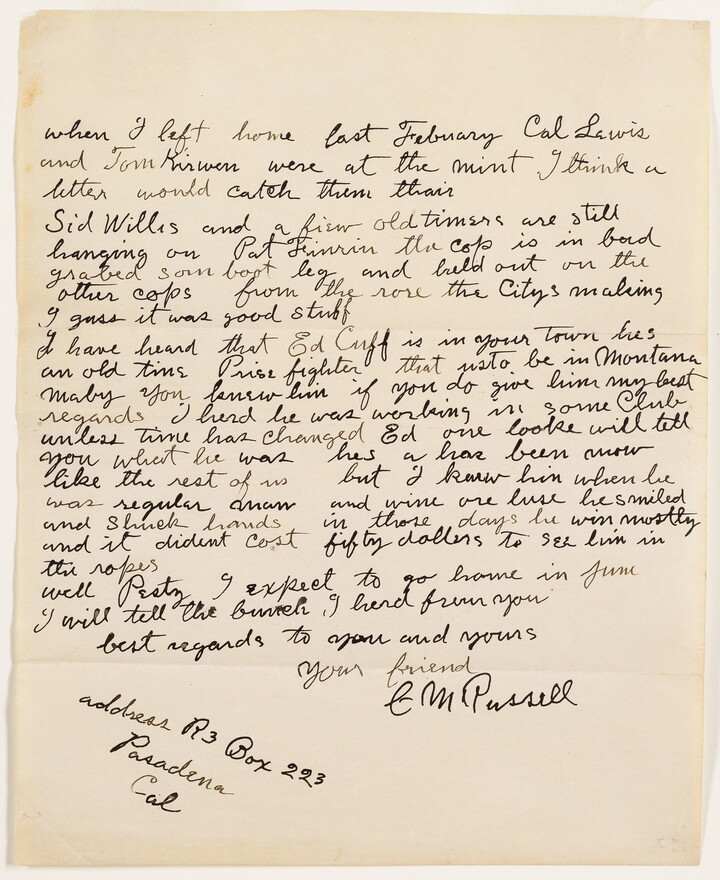 when I left home last Febuary Cal Lewis
and Tom Kirwen were at the mint I think a
letter would catch them thair
Sid Willis and a fiew old timers are still
hanging on Pat Finrin the cop is in bad
grabed som boot leg and held out on the
other cops from the rore the Citys making
I gass it was good stuff
I have heard that Ed Cuff is in your town hes
an old time Prise fighter that usto be in Montana
maby you knew him if you do give him my best
regards I herd he was working in some Club
unless time has changed Ed one looke will tell
you what he was hes a has been now
like the rest of us but I knew him when he
was regular man and wine ore luse he smiled
and shuck hands in those days he win mostly
and it dident cost fifty dollers to see him in
the ropes
well I expect to go home in June
I will tell the bunch I herd from you
best regards to you and yours
Your friend
C M Russell
address R3 Box 223
Pasadena
Cal